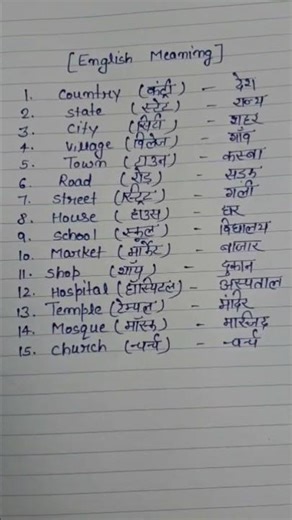 [English Meaning]
1. Country (कंट्री) - देश
2. State (स्टेट) - राज्य
3. City (सिटी) - शहर
4. Village (विलेज) - गाँव
5. Town (टाउन) - कस्बा
6. Road (रोड) - सड़क
7. Street (स्ट्रिट) - गली
8. House (हाउस) - घर
9. School (स्कूल) - विद्यालय
10. Market (मार्केट) - बाजार
11. Shop (शाप) - दुकान
12. Hospital (हॉस्पिटल) - अस्पताल
13. Temple (टेम्पल) - मंदिर
14. Mosque (मॉस्क) - मस्जिद
15. Church (चर्च) - चर्च